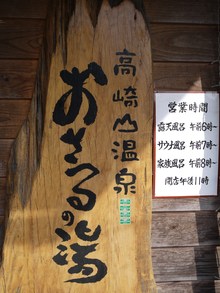 高崎山温泉
おさるの湯
営業時間
露天風呂 午前6時〜
サウナ風呂 午前7時〜
家族風呂 午前8時〜
閉店午後11時